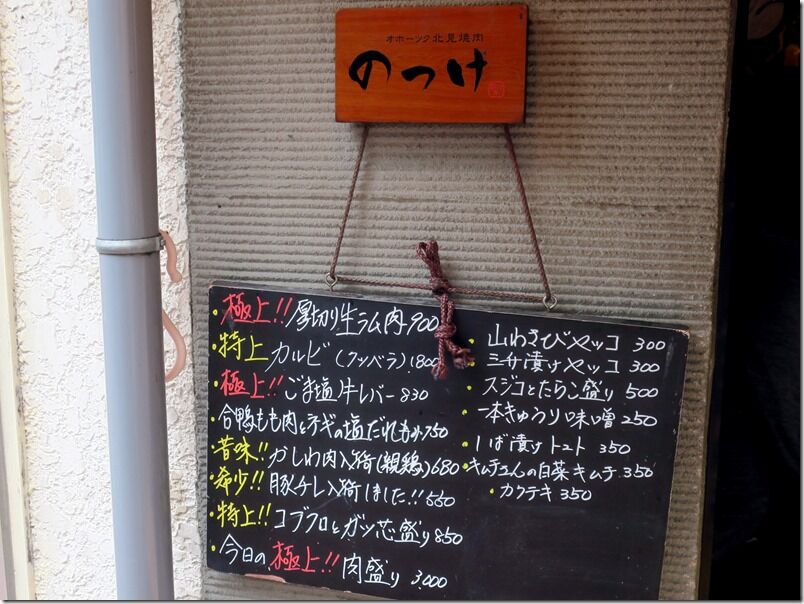 オホーツク北見焼肉
のつけ
・極上!! 厚切り生ラム肉 900
・特上 カルビ (クツベラ) 1800
・極上!! ごま塩牛レバー 830
・合鴨もも肉とネギの塩だれもみ 750
・昔味!! かしわ肉入荷(親鶏) 680
・希少!! 豚チレ入荷しました!! 550
・特上!! コブクロとガツ芯盛り 850
・今日の極上!! 肉盛り 3,000
・山わさびヤッコ 300
・三升漬けヤッコ 300
・スジコとたらこ盛り 500
・一本きゅうり味噌 250
・しば漬けトマト 350
・キムチさんの白菜キムチ 350
・カクテキ 350